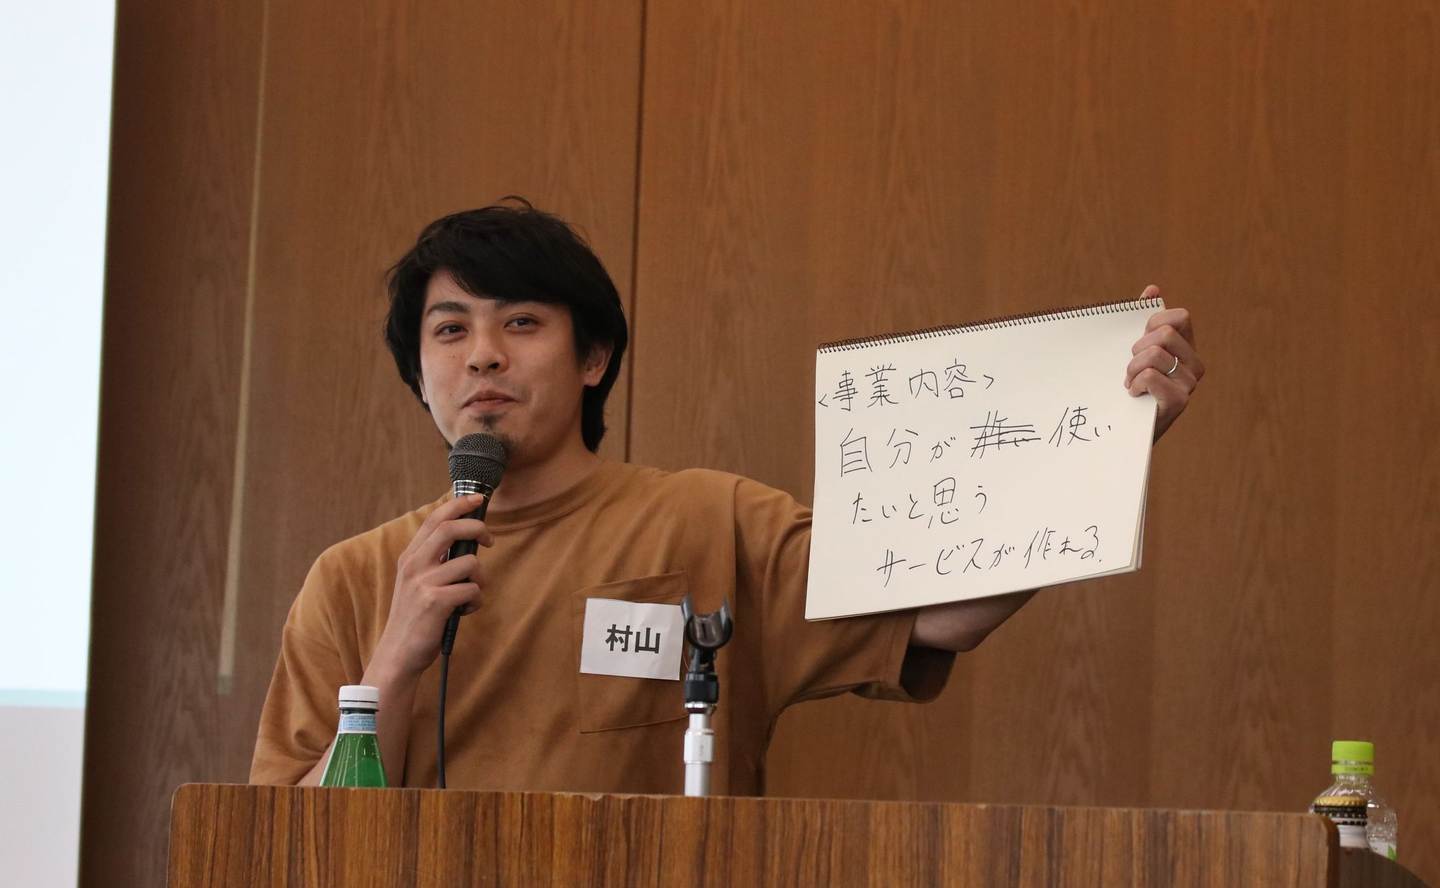 <事業内容>
自分が使い
たいと思う
サービスが作れる.
村山